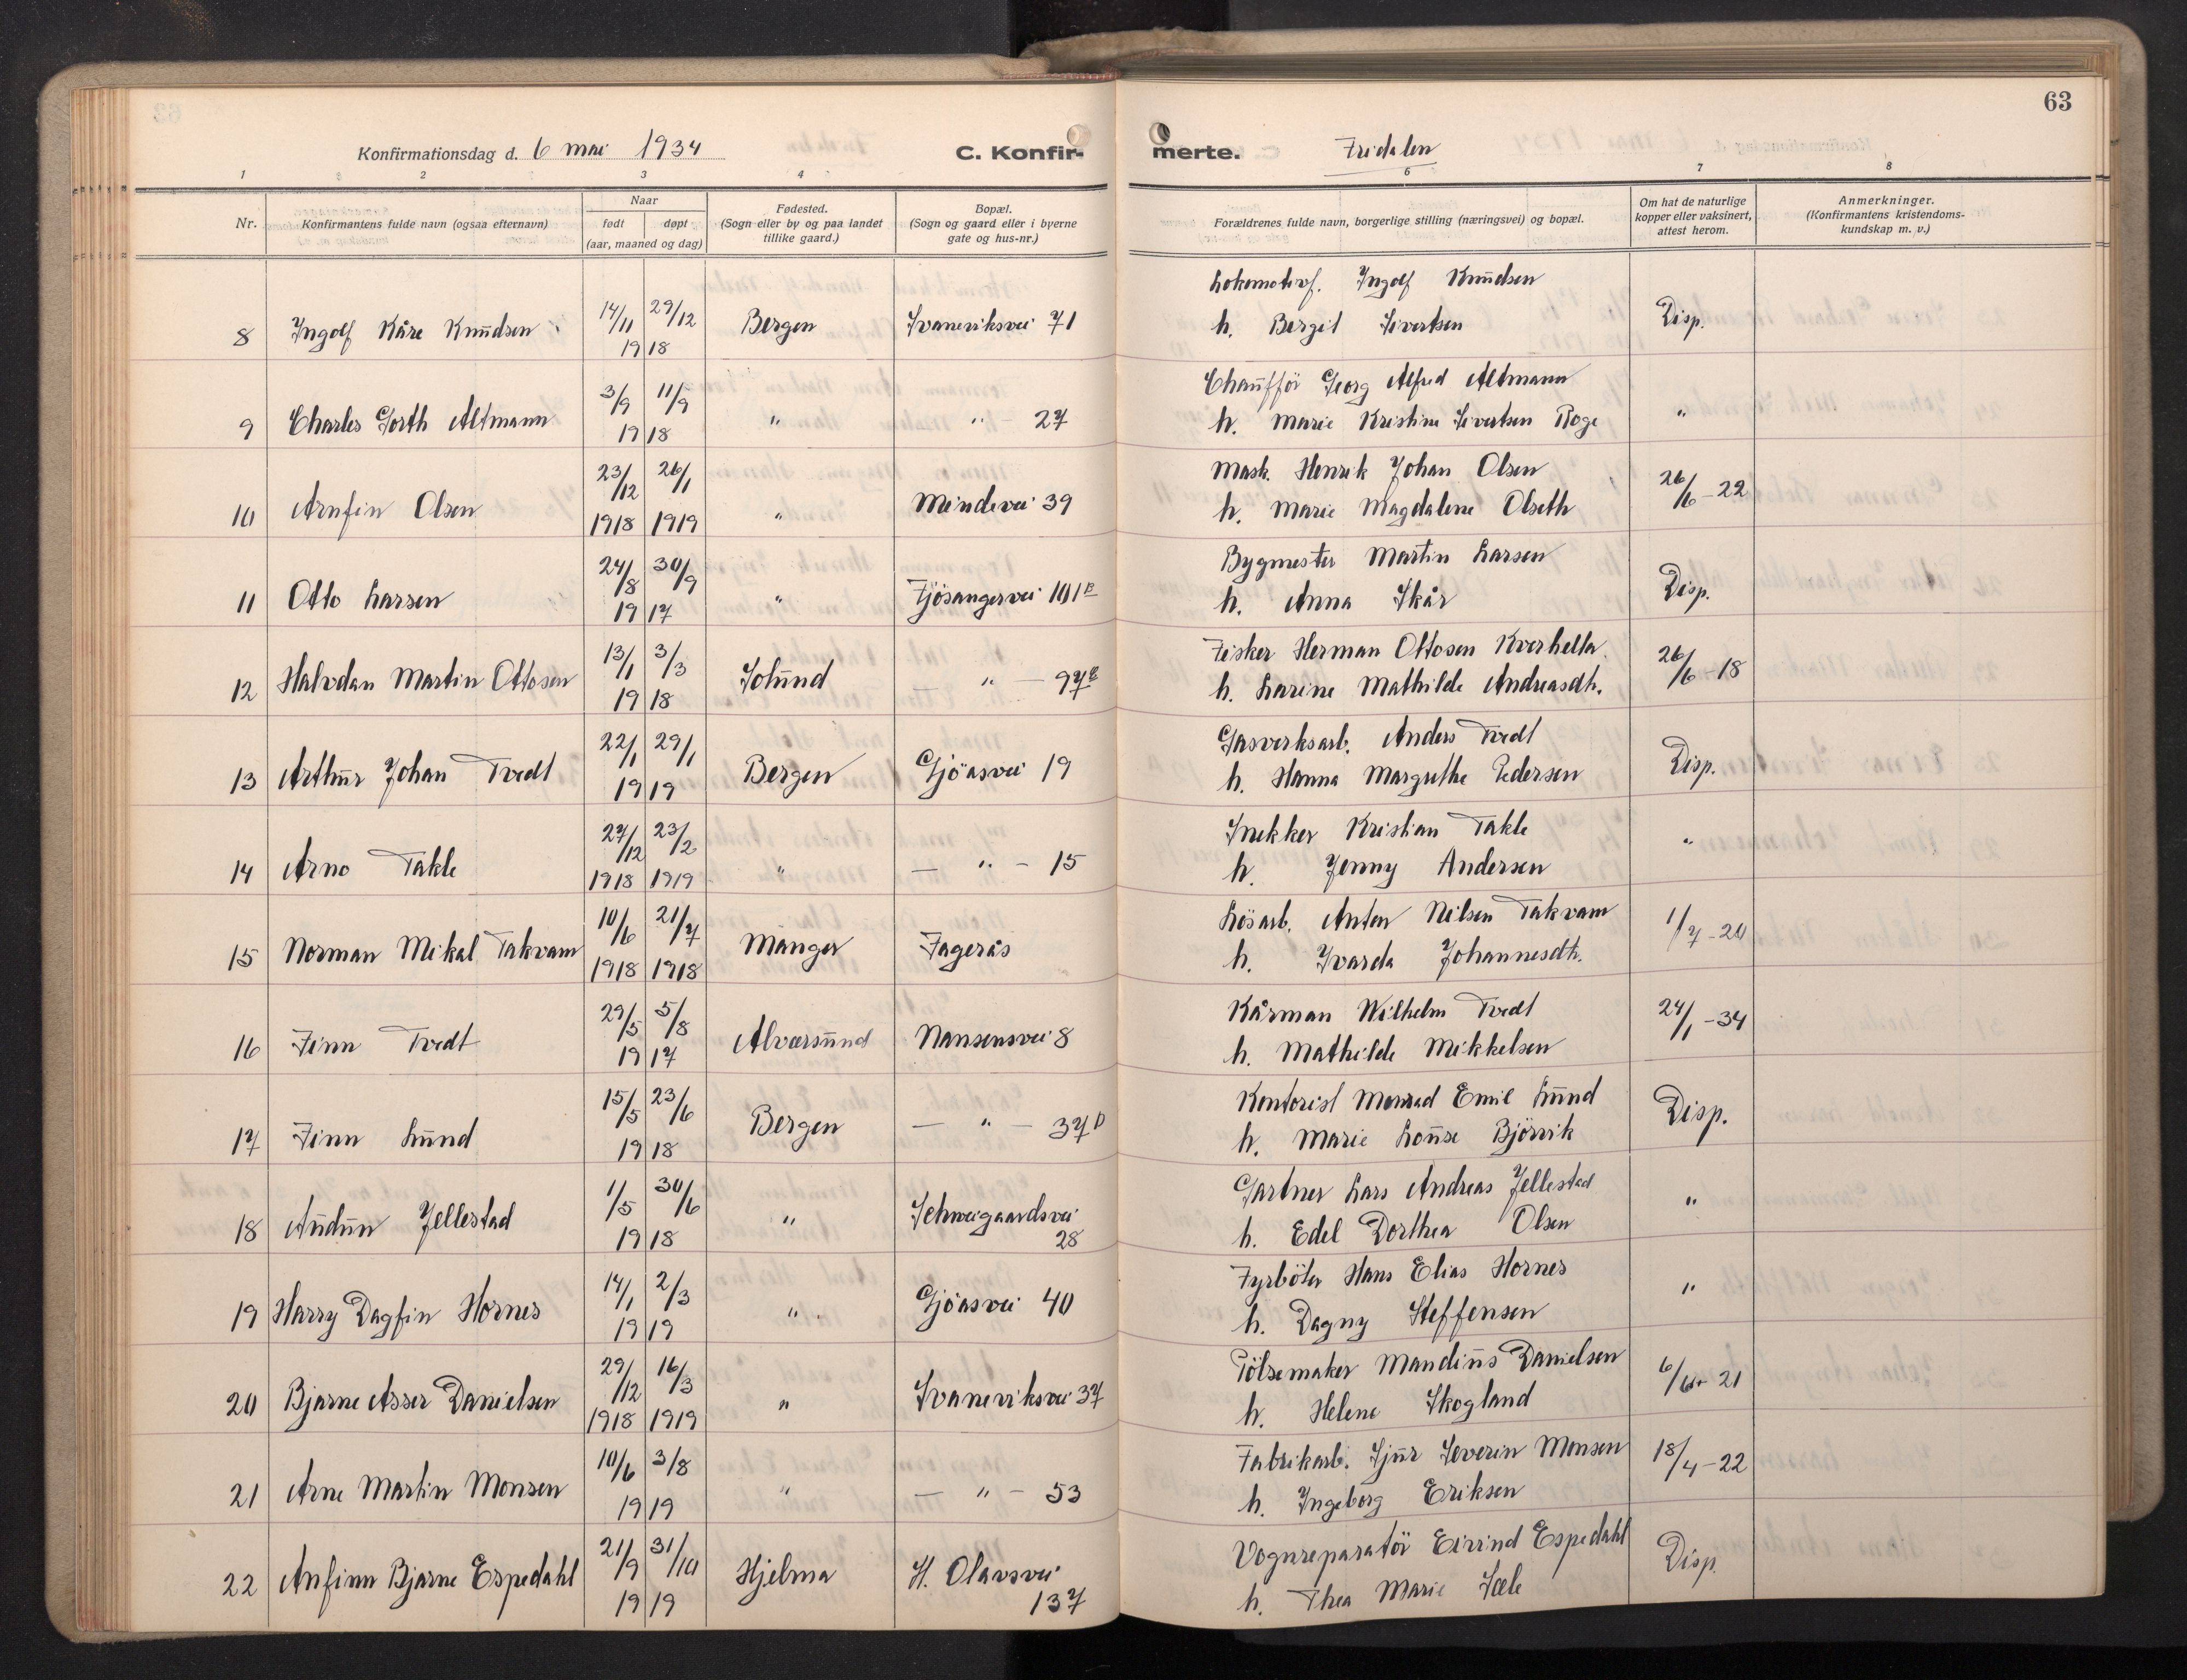 63
Konfirmationsdag d. 6 mai 1934
C. Konfir-
merte.
Fridalen
1 2 3 4 5 6 7 8
Nr.
Konfirmantens fulde navn (ogsaa efternavn)
Naar
født døpt
(aar, maaned og dag)
Fødested.
(Sogn eller by og paa landet
tillike gaard.)
Bopæl.
(Sogn og gaard eller i byerne
gate og hus-nr.)
Forældrenes fulde navn, borgerlige stilling (næringsvei) og bopæl.
Om hat de naturlige
kopper eller vaksinert,
attest herom.
Anmerkninger.
(Konfirmantens kristendoms-
kundskap m. v.)
8 Ingolf Kåre Knudsen 14/11 29/12 1918 Bergen Svaneviksvei 71
Lokomotivf. Ingolf Knudsen
h. Bergit Sivertsen Disp.
9 Charles Gorth Altmann 3/9 11/9 1918 " " - 27
Chaufför Georg Alfred Altmann
h. Marie Kristine Sivertsen Roge "
10 Arnfin Olsen 23/12 1918 26/1 1919 " Mindevei 39
Mask. Henrik Johan Olsen
h. Marie Magdalene Olseth 26/6-22
11 Otto Larsen 24/8 30/9 1917 " Fjösangervei 101B
Bygmester Martin Larsen
h. Anna Skår Disp.
12 Halvdan Martin Ottosen 13/1 3/3 1918 Solund — " — 97B
Fisker Herman Ottosen Kverhella
h. Larine Mathilde Andreasdt. 26/6-18
13 Arthur Johan Tvedt 22/1 29/1 1919 Bergen Gjöasvei 19
Gasverksarb. Anders Tvedt
h. Hanna Margrethe Pedersen Disp.
14 Arno Takle 27/12 1918 23/2 1919 " — " — 15
Snekker Kristian Takle
h. Jenny Andersen "
15 Norman Mikal Takvam 10/6 1918 21/7 1918 Manger Fagerås
Lösarb. Anton Nilsen Takvam
h. Ivarda Johannesdt. 1/7-20
16 Finn Tvedt 29/5 5/8 1917 Alversund Nansensvei 8
Kårman Wilhelm Tvedt
h. Mathilde Mikkelsen 24/1-34
17 Finn Lund 15/5 23/6 1918 Bergen — " — 37D
Kontorist Monrad Emil Lund
h. Marie Louise Björvik Disp.
18 Audun Jellestad 1/5 30/6 1918 " Schweigaardsvei
28
Gartner Lars Andreas Jellestad
h. Edel Dorthea Olsen "
19 Harry Dagfin Hornes 14/1 2/3 1919 " Gjöasvei 40
Fyrböter Hans Elias Hornes
h. Dagny Steffensen "
20 Bjarne Asser Danielsen 29/12 1918 16/3 1919 " Svaneviksvei 37
Pölsemaker Mandius Danielsen
h. Helene Skogland 21
21 Arne Martin Monsen 10/6 3/8 1919 " — " — 53
Fabrikarb. Sjur Severin Monsen
h. Ingeborg Eriksen 18/4-22
22 Anfinn Bjarne Espedahl 21/9 31/10 1919 Hjelma H. Olavsvei
137
Vognreparatör Eivind Espedahl
h. Thea Marie Sæle Disp.